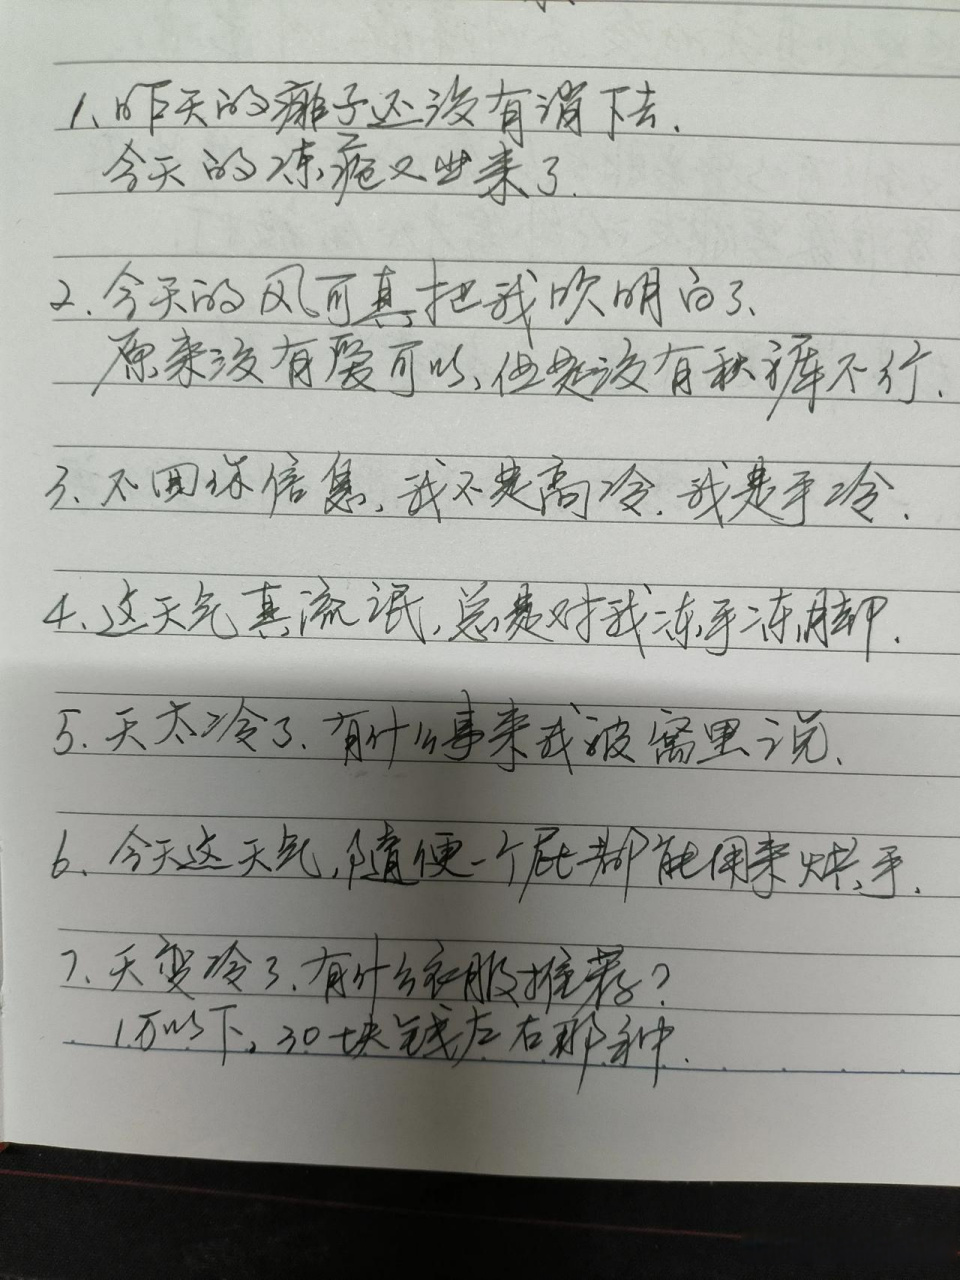 1、昨天的痱子还没有消下去,
今天的冻疮又出来了.
2.今天的风可真把我吹明白了、
原来没有爱可以,但是没有秋裤不行.
3、不回你信息,我不是高冷.我是手冷.
4、这天气真流氓,总是对我冻手冻脚.
5.天太冷了.有什么事来我被窝里说.
6、今天这天气,随便一个屁都能用来烘手.
7、天变冷了、有什么衣服推荐?
1万以下,30块钱左右那种.